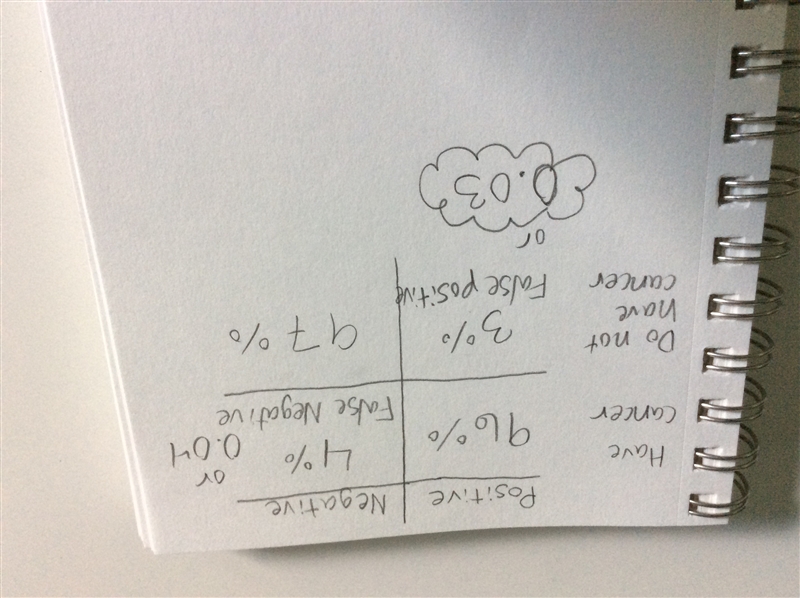 Positive Negative
Have cancer 96% 4% or 0.04
False Negative
Do not have cancer 3% 97%
False positive
or
0.03